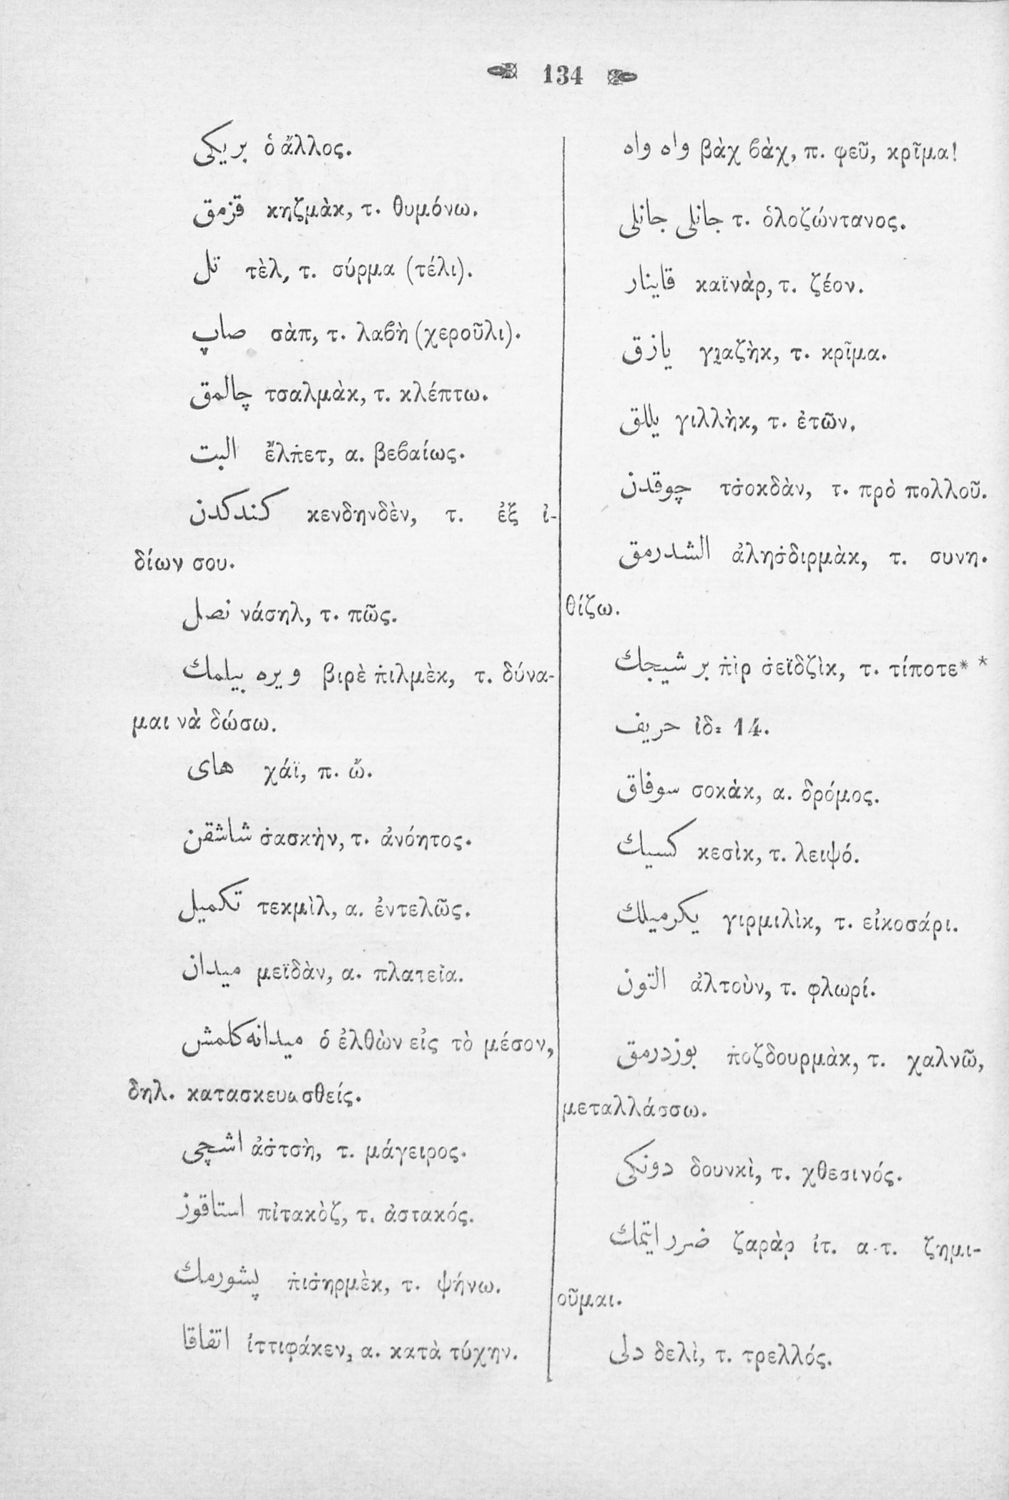 134
بریکی ὁ ἄλλος.
قزمق κηζμὰκ, τ. θυμόνω.
تل τὲλ, τ. σύρμα (τέλι).
صاپ σὰπ, τ. λαβὴ (χεροῦλι).
چالمق τσαλμὰκ, τ. κλέπτω.
البت ἔλπετ, α. βεβαίως.
كندكدن κενδηνδὲν, τ. ἐξ ἰ-
δίων σου.
نصل νάσηλ, τ. πῶς.
ویره بیلمك βιρὲ πιλμὲκ, τ. δύνα-
μαι νὰ δώσω.
های χάϊ, π. ὤ.
شاشقن σ̇ασκὴν, τ. ἀνόητος.
تكمیل τεκμὶλ, α. ἐντελῶς.
میدان μεϊδὰν, α. πλατεῖα.
میدانه كلمش ὁ ἐλθὼν εἰς τὸ μέσον,
δηλ. κατασκευασθείς.
اشچی ἀσ̇τσὴ, τ. μάγειρος.
استاقوز πἰτακὸζ, τ. ἀστακός.
پشورمك ṗισ̇ηρμὲκ, τ. ψήνω.
اتفاقا ἰττιφάκεν, α. κατὰ τύχην.
واه واه βὰχ βὰχ, π. φεῦ, κρῖμα!
جانلی جانلی τ. ὁλοζώντανος.
قاینار καϊνὰρ, τ. ζέον.
یازق γιαζὴκ, τ. κρῖμα.
یللق γιλλὴκ, τ. ἐτῶν.
چوقدن τσ̇οκδὰν, τ. πρὸ πολλοῦ.
الشدرمق ἀλησ̇διρμὰκ, τ. συνη-
θίζω.
بر شیجك ṗὶρ σ̇εϊδζὶκ, τ. τίποτε* *
حریف ἰδ: 14.
سوقاق σοκὰκ, α. δρόμος.
كسیك κεσὶκ, τ. λειψό.
یكرمیلك γιρμιλὶκ, τ. εἰκοσάρι.
التون ἀλτοὺν, τ. φλωρί.
بوزدرمق ṗοζδουρμὰκ, τ. χαλνῶ,
μεταλλάσσω.
دونكی δουνκὶ, τ. χθεσινός.
ضرر ایتمك ζαρὰρ ἰτ. α-τ. ζημι-
οῦμαι.
دلی δελὶ, τ. τρελλός.